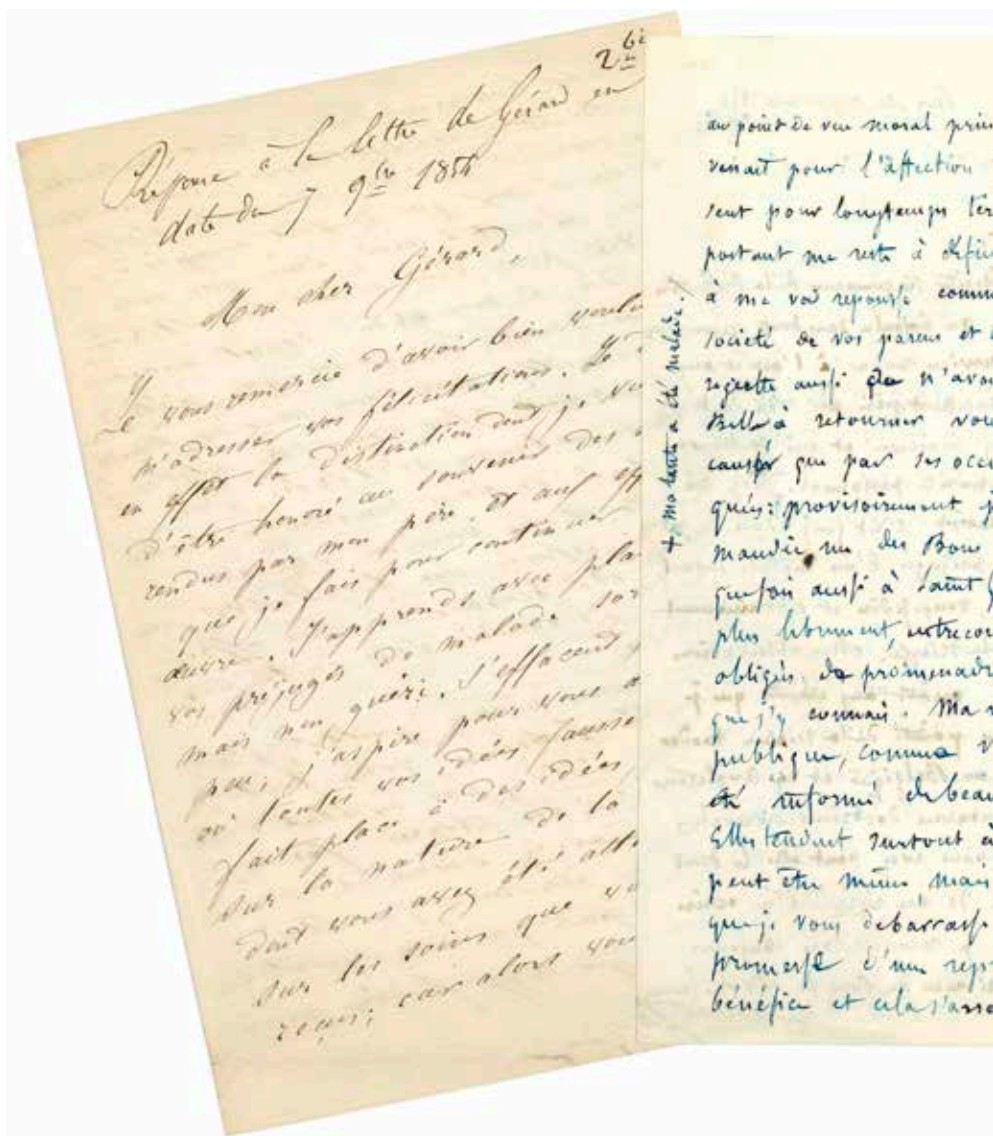 Réponse à la lettre de Gérard en
date du 7 9bre 185
Mon cher Gérard,
Je vous remercie d'avoir bien voulu
m'adresser vos félicitations. Je
en effet la distinction dont je
d'être honoré au souvenir des
rendus par mon père, et aux
que je fais pour continuer
œuvre. J'apprends avec
vos préjugés de malade
mais non guéri, s'effacent
peu; j'aspire pour vous
où toutes vos idées fausse
fait place à des idées
sur la nature de la
dont vous avez été
sur les soins que
reçus; car alors vou
au point de vue moral prin
venait pour l'affection
sent pour longtemps
portant me reste à
à me voir repoussé comm
société de vos parens et
regrette aussi que n'avo
Bell à retourner vou
causer que par ses occ
qués: provisoirement j
maudie un des Bons
quefois aussi à Saint G
plus librement, entrecou
obligés de promenade
que j'y connais. Ma
publique, comme v
été informé de beau
Elles tendent surtout à
peut être mieux mais
que je vous débarrasse
promesse d'une repr
bénéfice et cela s'
+ ma tante a été malade.